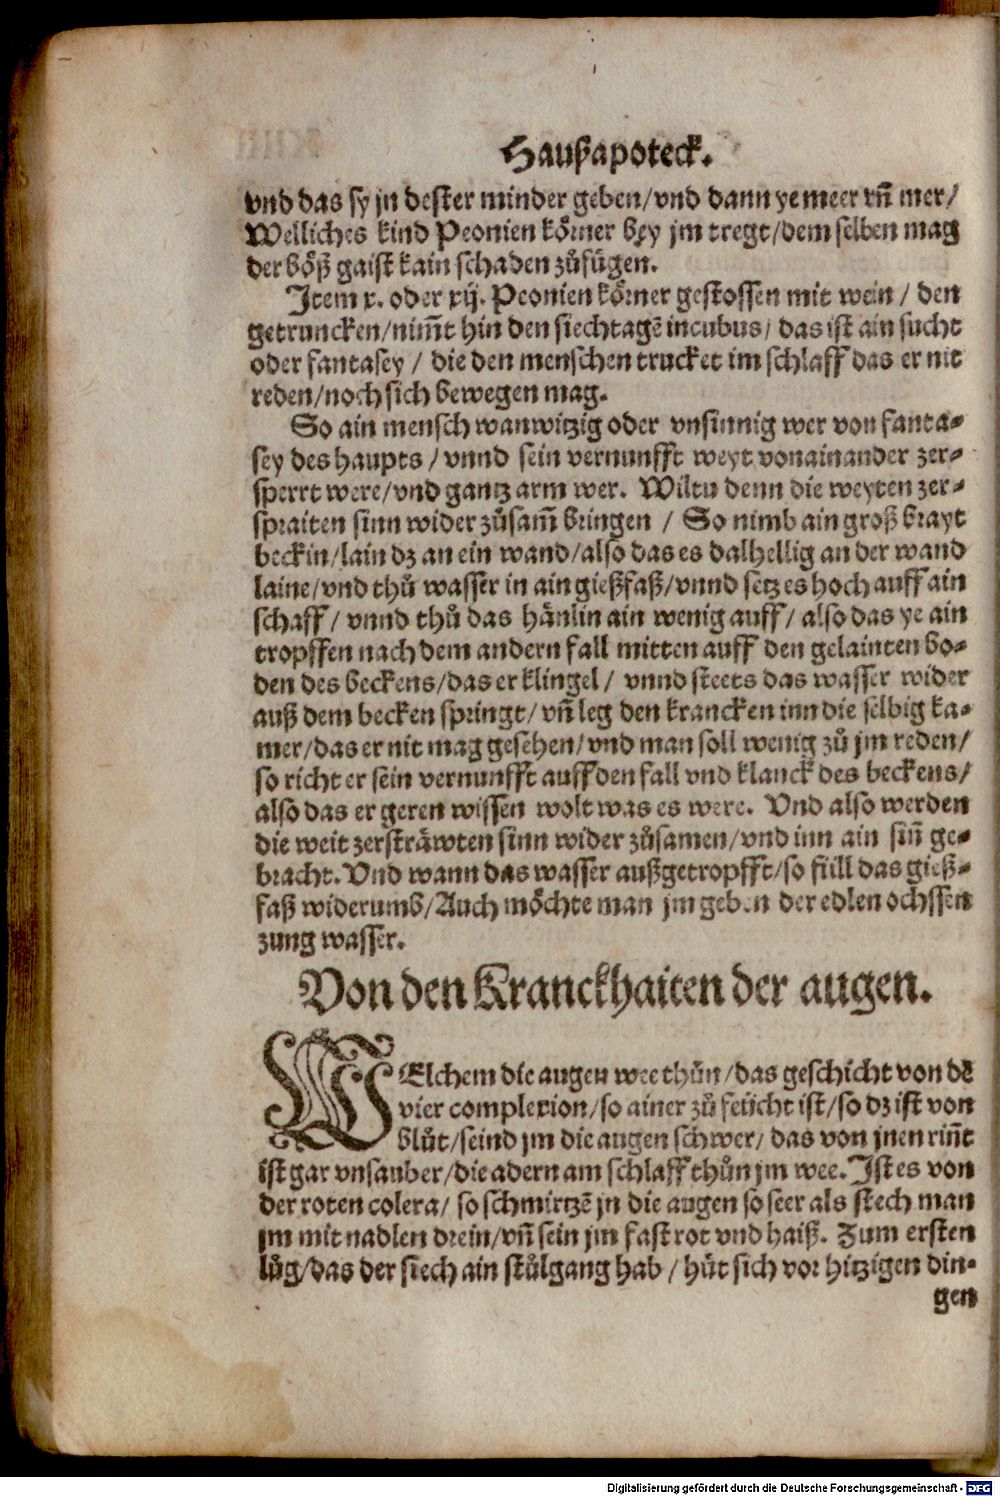 Haußapoteck.
vnd das sy jn dester minder geben/vnd dann ye meer vn̄ mer/
Welliches kind Peonien körner bey jm tregt/dem selben mag
der böß gaist kain schaden zůfügen.
Item x. oder xij. Peonien körner gestossen mit wein / den
getruncken/nim̄t hin den siechtagē incubus/ das ist ain sucht
oder fantasey / die den menschen trucket im schlaff das er nit
reden/noch sich bewegen mag.
So ain mensch wanwitzig oder vnsinnig wer von fanta-
sey des haupts / vnnd sein vernunfft weyt vonainander zer-
sperrt were/vnd gantz arm wer. Wiltu denn die weyten zer-
spraiten sinn wider zůsam̄ bringen / So nimb ain groß brayt
beckin/lain dz an ein wand/also das es dalhellig an der wand
laine/vnd thů wasser in ain gießfaß/vnnd setz es hoch auff ain
schaff / vnnd thů das hänlin ain wenig auff / also das ye ain
tropffen nach dem andern fall mitten auff den gelainten bo-
den des beckens/das er klingel / vnnd steets das wasser wider
auß dem becken springt/vn̄ leg den krancken inn die selbig ka-
mer/das er nit mag gesehen/vnd man soll wenig zů jm reden/
so richt er sein vernunfft auff den fall vnd klanck des beckens/
also das er geren wissen wolt was es were. Vnd also werden
die weit zersträwten sinn wider zůsamen/vnd inn ain sin̄ ge-
bracht. Vnd wann das wasser außgetropfft/so füll das gieß-
faß widerumb/Auch möchte man jm geben der edlen ochssen
zung wasser.
Von den Kranckhaiten der augen.
WElchem die augen wee thůn/das geschicht von dē
vier complexion/so ainer zů feücht ist/so dz ist von
blůt/seind jm die augen schwer/ das von jnen rin̄t
ist gar vnsauber/die adern am schlaff thůn jm wee. Ist es von
der roten colera/ so schmirtzē jn die augen so seer als stech man
jm mit nadlen drein/vn̄ sein jm fast rot vnd haiß. Zum ersten
lůg/das der siech ain stůlgang hab / hüt sich vor hitzigen din-
gen
Digitalisierung gefördert durch die Deutsche Forschungsgemeinschaft - DFG